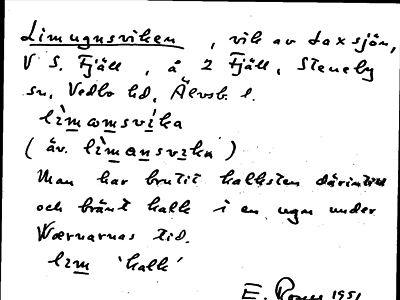 Limugnsviken, vik av Laxsjön,
V S. Fjäll, å 2 Fjäll, Steneby
sn, Vedbo hd, Älvsb. l.
lìmomsvika
(äv. lìmansvika)
Man har brutit kalksten därintill
och bränt kalk i en ugn under
Wærnarnas tid.
lim 'kalk'
E. 1951